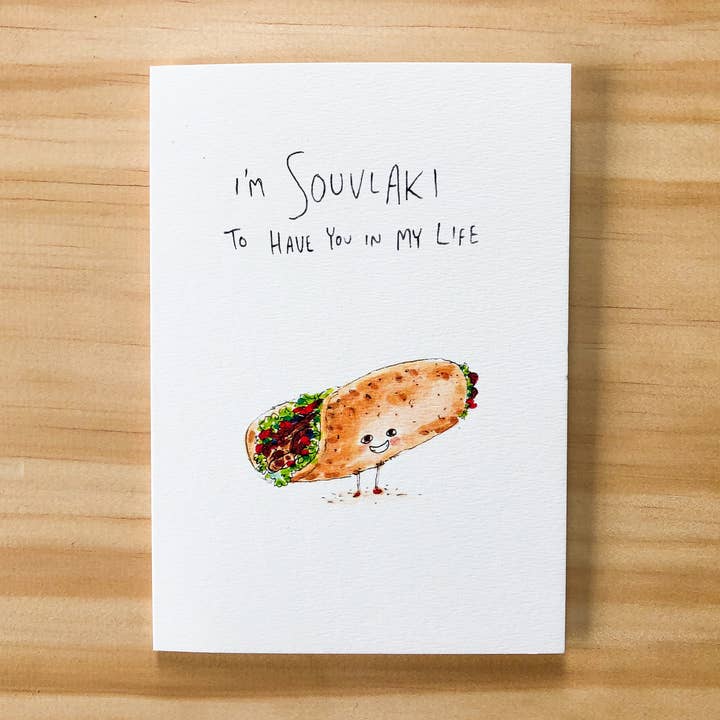 I'M SOUVLAKI
TO HAVE YOU IN MY LIFE